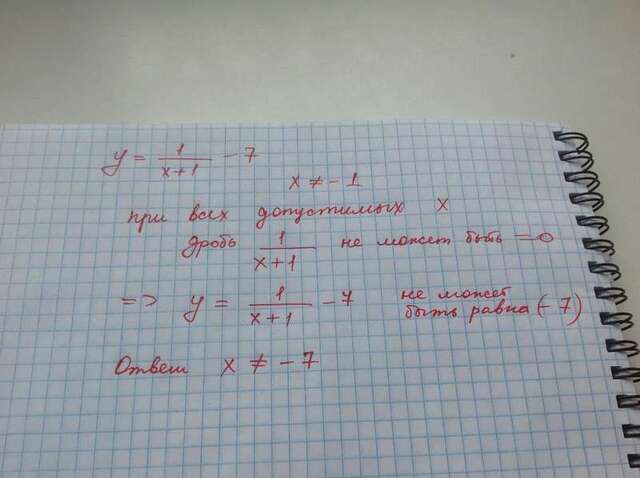 y = 1/(x+1) - 7
x ≠ -1
при всех допустимых x
дробь 1/(x+1) не может быть = 0
=> y = 1/(x+1) - 7 не может быть равна (-7)
Ответ x ≠ -7